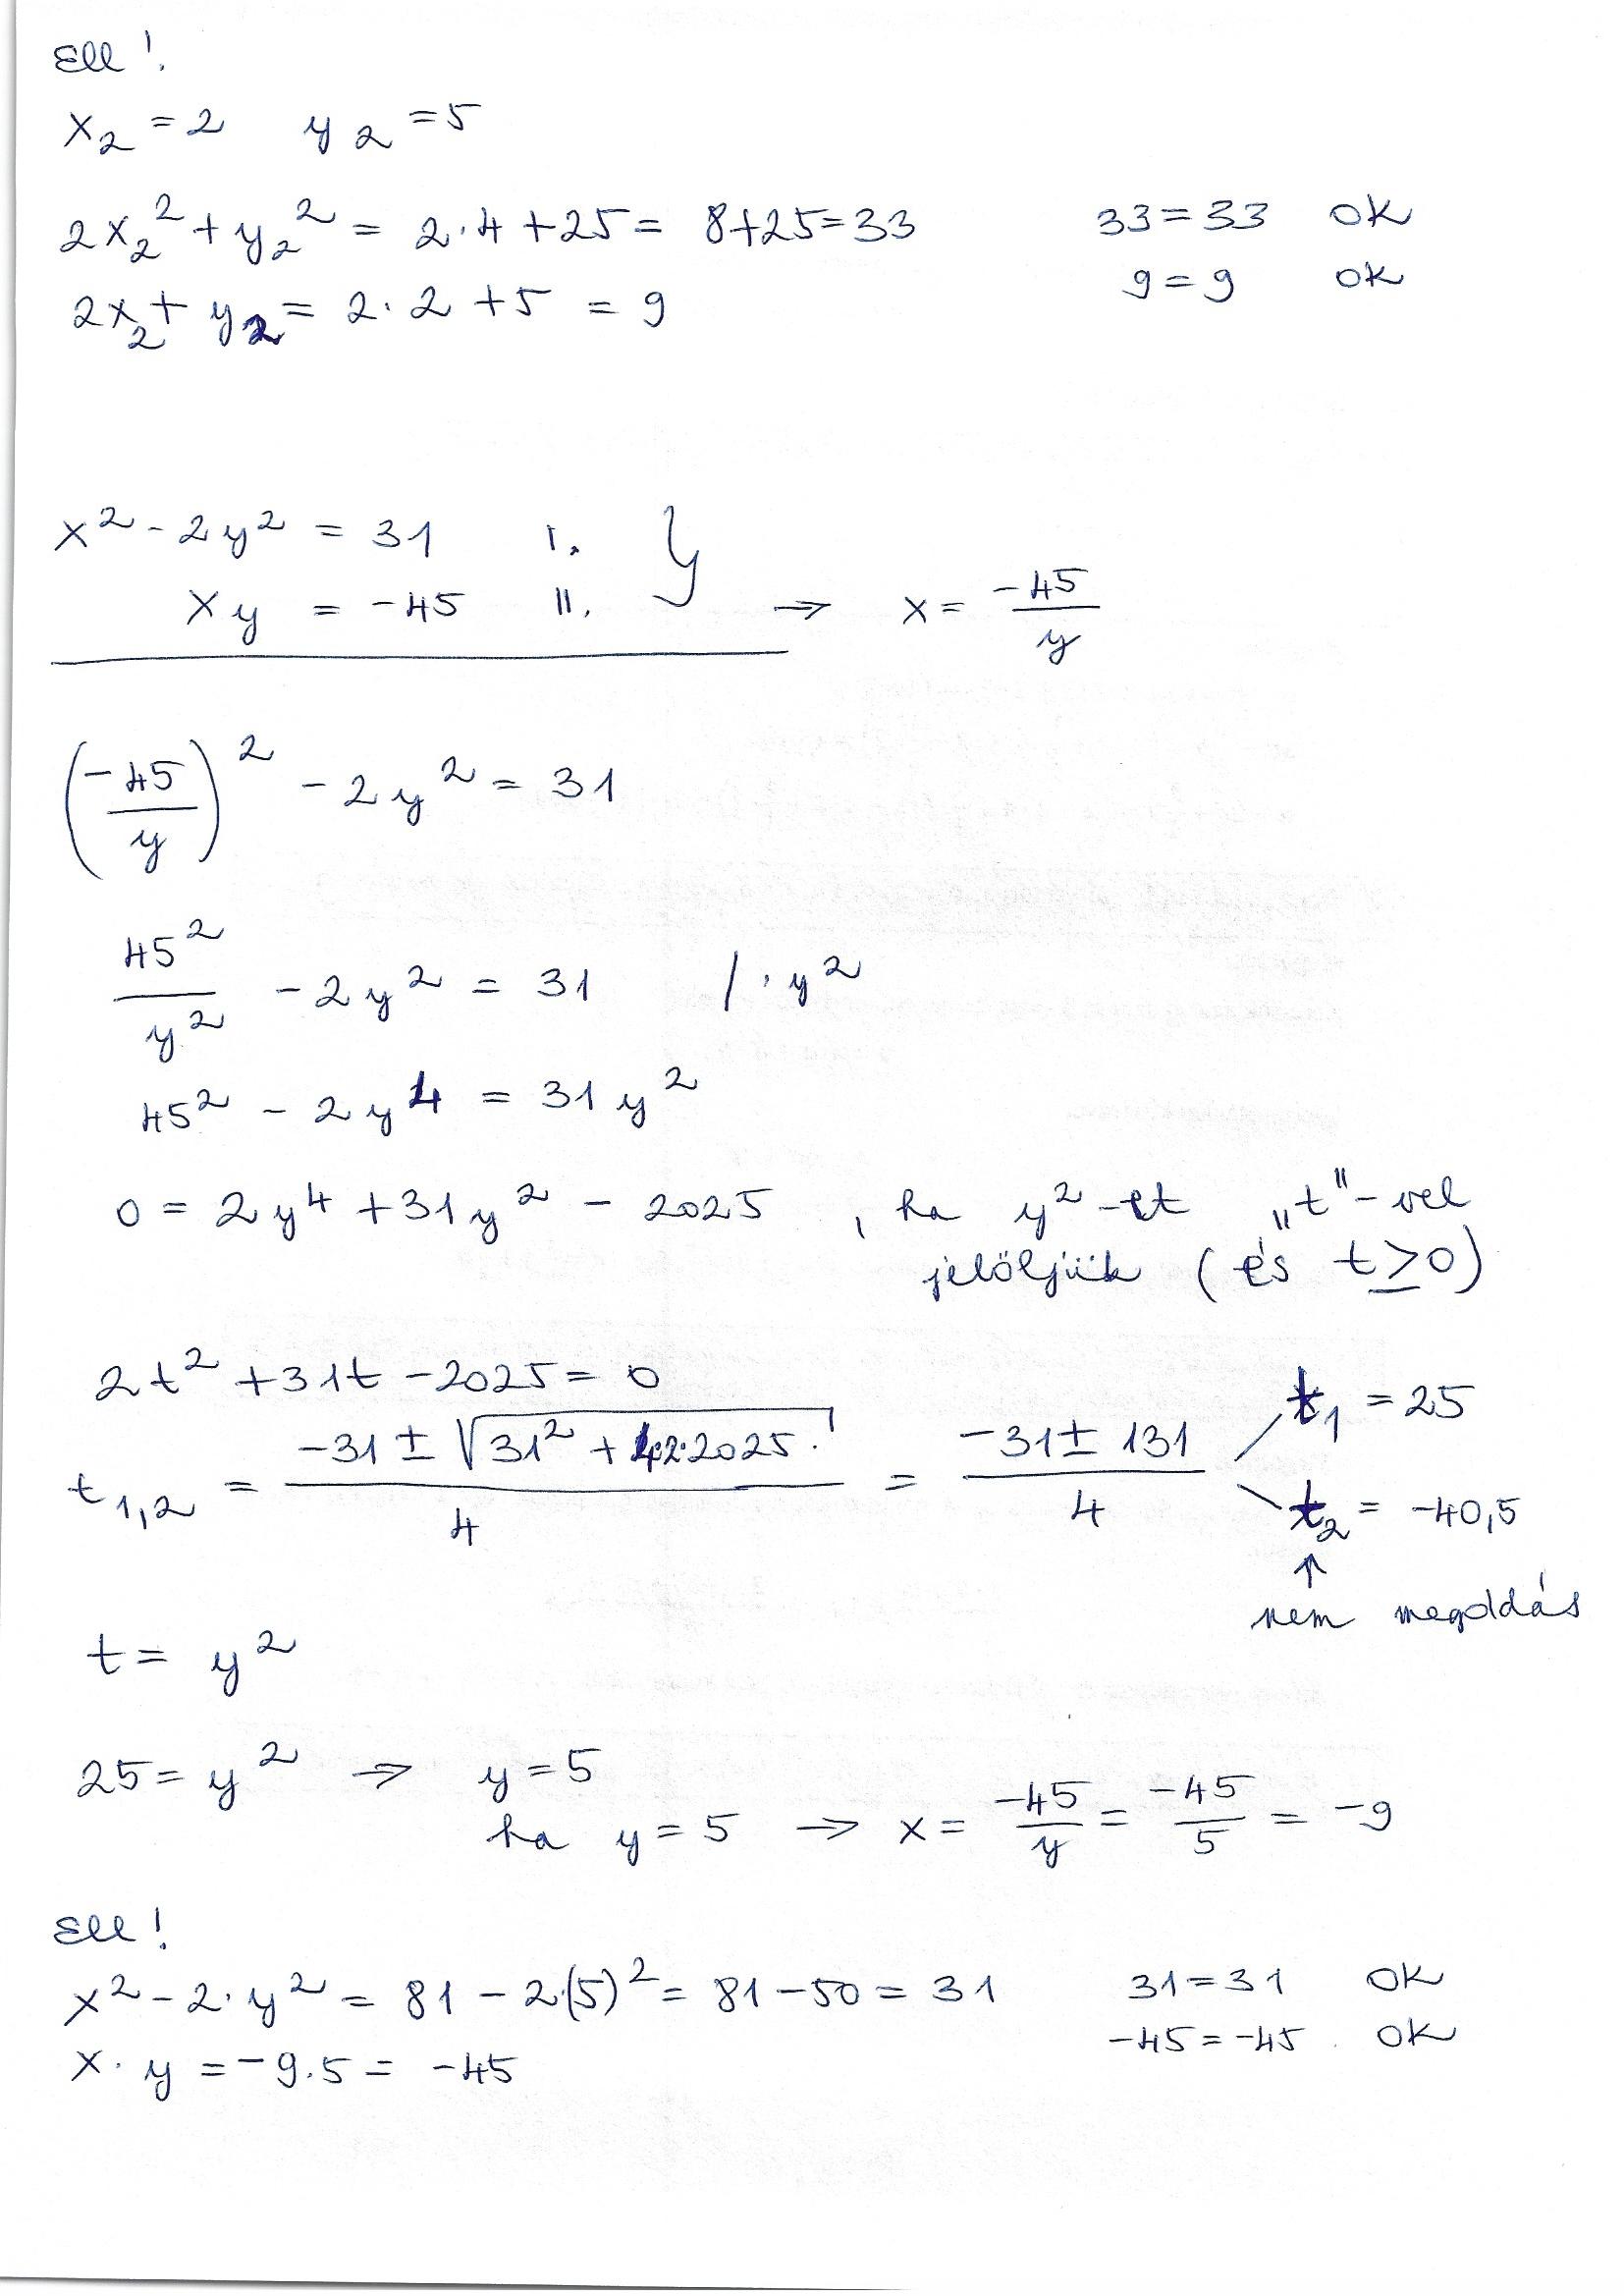 Ell!
x₂ = 2 y₂ = 5
2x₂² + y₂² = 2·4 + 25 = 8+25 = 33 33 = 33 OK
2x₂ + y₂ = 2·2 + 5 = 9 9 = 9 OK
x² - 2y² = 31 I. }
xy = -45 II. → x = -45/y
(-45/y)² - 2y² = 31
45²/y² - 2y² = 31 /·y²
45² - 2y⁴ = 31y²
0 = 2y⁴ + 31y² - 2025 , ha y²-et „t"-vel
jelöljük (és t ≥ 0)
2t² + 31t - 2025 = 0
t₁,₂ = (-31 ± √(31² + 4·2·2025))/4 = (-31 ± 131)/4 t₁ = 25
t₂ = -40,5
↑
nem megoldás
t = y²
25 = y² → y = 5
ha y = 5 → x = -45/y = -45/5 = -9
Ell!
x² - 2·y² = 81 - 2·(5)² = 81 - 50 = 31 31 = 31 OK
x·y = -9·5 = -45 -45 = -45 OK